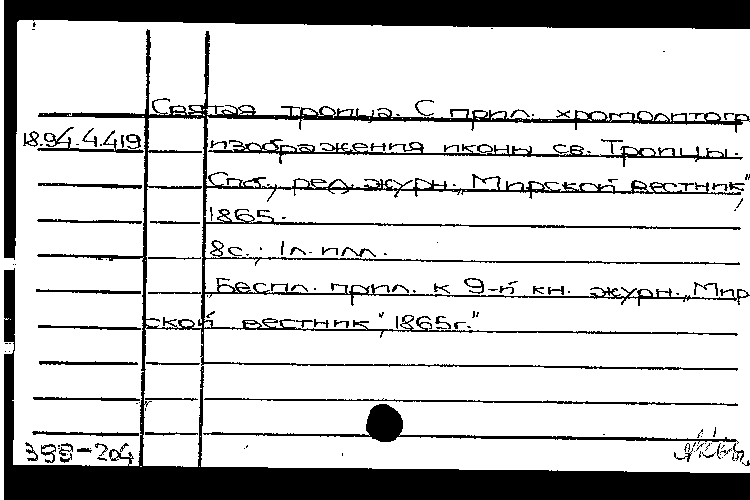 Святая троица. С прил. хромолитогр
18.94.4.419 изображения иконы св. Троицы.
Спб., ред. журн. „Мирской вестник",
1865.
8с.; 1л. илл.
„Беспл. прил. к 9-й кн. журн. „Мир
ской вестник", 1865г."
399-204